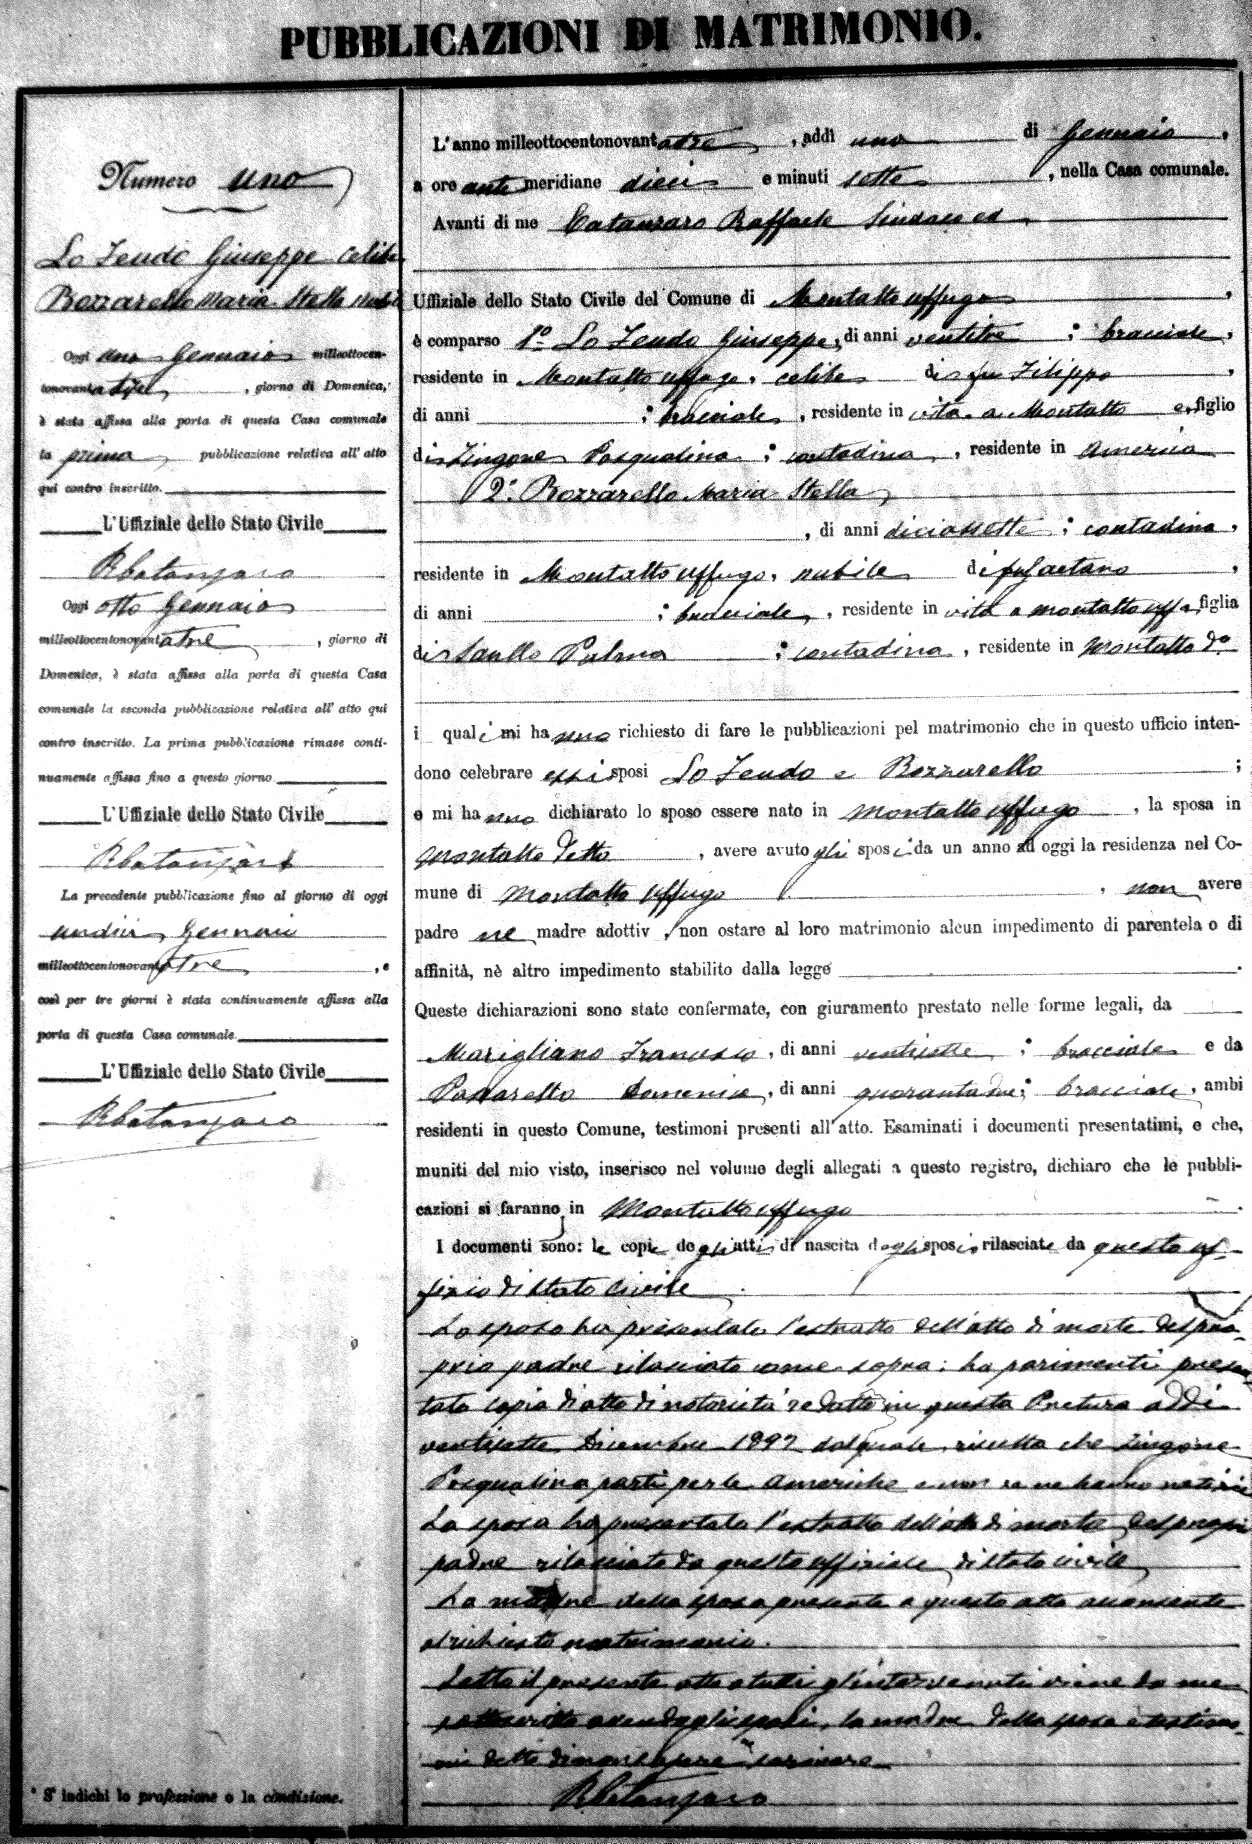 PUBBLICAZIONI DI MATRIMONIO.
Numero uno
Lo Feudo Giuseppe celibe
Bozzarello Maria Stella nubile
Oggi uno Gennaio milleottocen-
tonovantatre, giorno di Domenica,
è stata affissa alla porta di questa Casa comunale
la prima pubblicazione relativa all'atto
qui contro inscritto.
L'Uffiziale dello Stato Civile
RCatanzaro
Oggi otto Gennaio
milleottocentonovantatre, giorno di
Domenica, è stata affissa alla porta di questa Casa
comunale la seconda pubblicazione relativa all'atto qui
contro inscritto. La prima pubblicazione rimase conti-
nuamente affissa fino a questo giorno
L'Uffiziale dello Stato Civile
RCatanzaro
La precedente pubblicazione fino al giorno di oggi
undici Gennaio
milleottocentonovantatre, e
così per tre giorni è stata continuamente affissa alla
porta di questa Casa comunale.
L'Uffiziale dello Stato Civile
RCatanzaro
* S' indichi lo professione o la condizione.
L'anno milleottocentonovantatre, addì uno di Gennaio,
a ore antemeridiane dieci e minuti sette, nella Casa comunale.
Avanti di me Catanzaro Raffaele Sindaco ed
Uffiziale dello Stato Civile del Comune di Montalto Uffugo,
è comparso 1° Lo Feudo Giuseppe, di anni ventitre; bracciale,
residente in Montalto Uffugo, celibe di fu Filippo,
di anni ; bracciale, residente in vita a Montalto e, figlio
di Zingone Pasqualina; contadina, residente in America
2° Bozzarello Maria Stella
, di anni diciassette; contadina,
residente in Montalto Uffugo, nubile di fu Gaetano,
di anni ; bracciale, residente in vita a Montalto Uffo, figlia
di Saullo Palma; contadina, residente in Montalto do
i quali mi hanno richiesto di fare le pubblicazioni pel matrimonio che in questo ufficio inten-
dono celebrare essi sposi Lo Feudo e Bozzarello;
e mi hanno dichiarato lo sposo essere nato in Montalto Uffugo, la sposa in
Montalto detto, avere avuto gli sposi da un anno ad oggi la residenza nel Co-
mune di Montalto Uffugo, non avere
padre ne madre adottiv, non ostare al loro matrimonio alcun impedimento di parentela o di
affinità, nè altro impedimento stabilito dalla legge.
Queste dichiarazioni sono state confermate, con giuramento prestato nelle forme legali, da
Marigliano Francesco, di anni ventisette; bracciale e da
Passarello Domenico, di anni quarantadue; bracciale, ambi
residenti in questo Comune, testimoni presenti all'atto. Esaminati i documenti presentatimi, e che,
muniti del mio visto, inserisco nel volume degli allegati a questo registro, dichiaro che le pubbli-
cazioni si faranno in Montalto Uffugo.
I documenti sono: le copie degli atti di nascita degli sposi rilasciate da questo uf-
fizio di stato civile
Lo sposo ha presentato l'estratto dell'atto di morte del pro-
prio padre rilasciato come sopra: ha parimenti presen-
tato copia di atto di notorietà redatto in questa Pretura addì
ventisette Dicembre 1892 dal quale risulta che Zingone
Pasqualina partì per le Americhe e non se ne hanno notizie
La sposa ha presentato l'estratto dell'atto di morte del proprio
padre rilasciato da questo uffiziale di stato civile
La madre della sposa presente a questo atto acconsente
al richiesto matrimonio.
Letto il presente atto a tutti gl'intervenuti viene da me
sottoscritto avendo gli sposi, la madre della sposa e testimo-
ni detto di non sapere scrivere
RCatanzaro